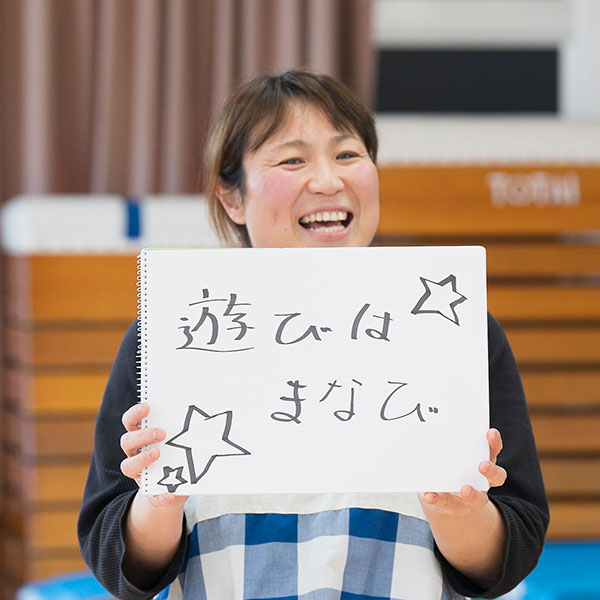 TOTAI
遊びは
まなび